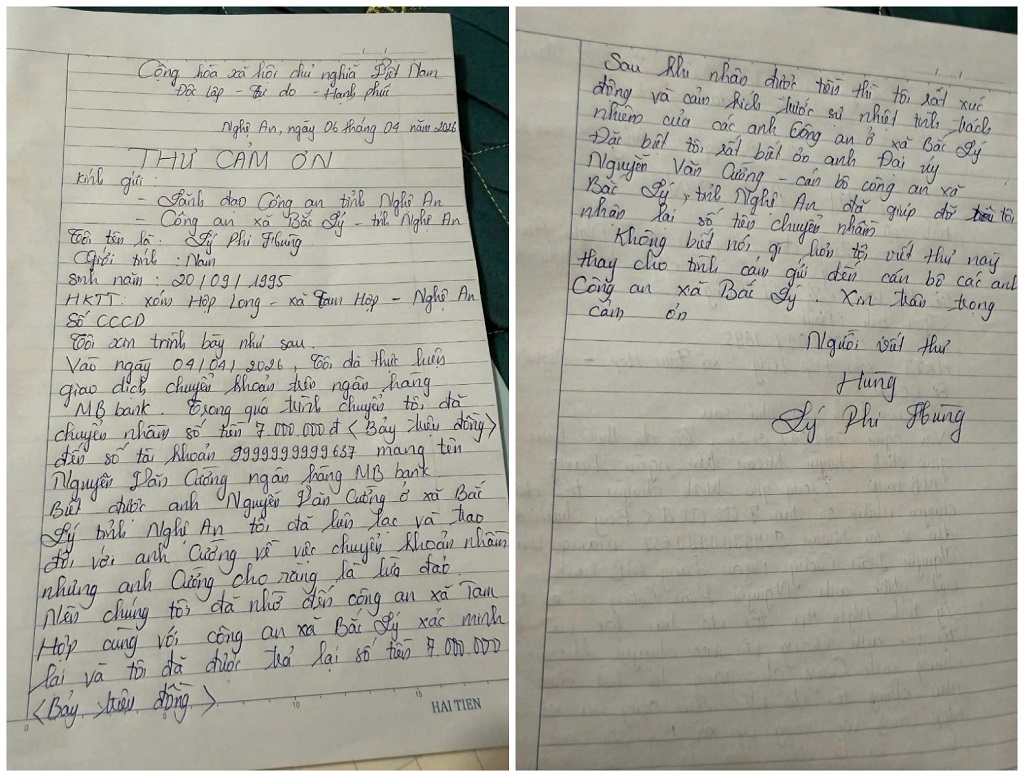 Cộng hòa xã hội chủ nghĩa Việt Nam
Độc lập - Tự do - Hạnh phúc
Nghệ An, ngày 06 tháng 04 năm 2026
THƯ CẢM ƠN
Kính gửi:
- Lãnh đạo Công an tỉnh Nghệ An
- Công an xã Bắc Lý - tỉnh Nghệ An
Tôi tên là: Lý Phi Hùng
Giới tính: Nam
Sinh năm: 20/09/1995
HKTT: xóm Hợp Long - xã Tam Hợp - Nghệ An
Số CCCD
Tôi xin trình bày như sau.
Vào ngày 04/04/2026, Tôi đã thực hiện
giao dịch chuyển khoản trên ngân hàng
MB bank. Trong quá trình chuyển tôi đã
chuyển nhầm số tiền 7.000.000đ <Bảy triệu đồng>
đến số tài khoản 9999999999637 mang tên
Nguyễn Văn Cường ngân hàng MB bank
Biết được anh Nguyễn Văn Cường ở xã Bắc
Lý tỉnh Nghệ An tôi đã liên lạc và trao
đổi với anh Cường về việc chuyển khoản nhầm
nhưng anh Cường cho rằng là lừa đảo.
Nên chúng tôi đã nhờ đến công an xã Tam
Hợp cùng với công an xã Bắc Lý xác minh
lại và tôi đã được trả lại số tiền 7.000.000
<Bảy triệu đồng>
HAI TIEN
Sau khi nhận được tiền thì tôi rất xúc
động và cảm kích trước sự nhiệt tình trách
nhiệm của các anh Công an ở xã Bắc Lý
Đặc biệt tôi rất biết ơn anh Đại úy
Nguyễn Văn Cường - cán bộ công an xã
Bắc Lý, tỉnh Nghệ An đã giúp đỡ tôi
nhận lại số tiền chuyển nhầm
Không biết nói gì hơn tôi viết thư này
thay cho tình cảm gửi đến cán bộ các anh
Công an xã Bắc Lý. Xin trân trọng
cảm ơn
Người viết thư
Hùng
Lý Phi Hùng